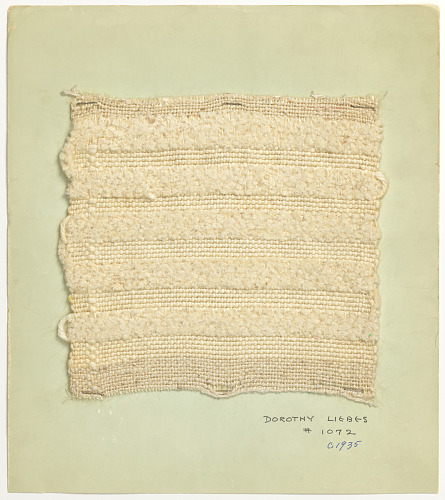 DOROTHY LIEBES
# 1072
C.1935